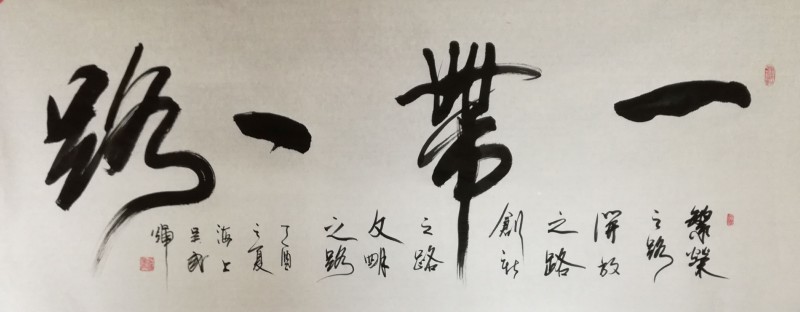 一帶一路
繁榮
之路
開放
之路
創新
之路
文明
之路
丁酉
之夏
海上
吴